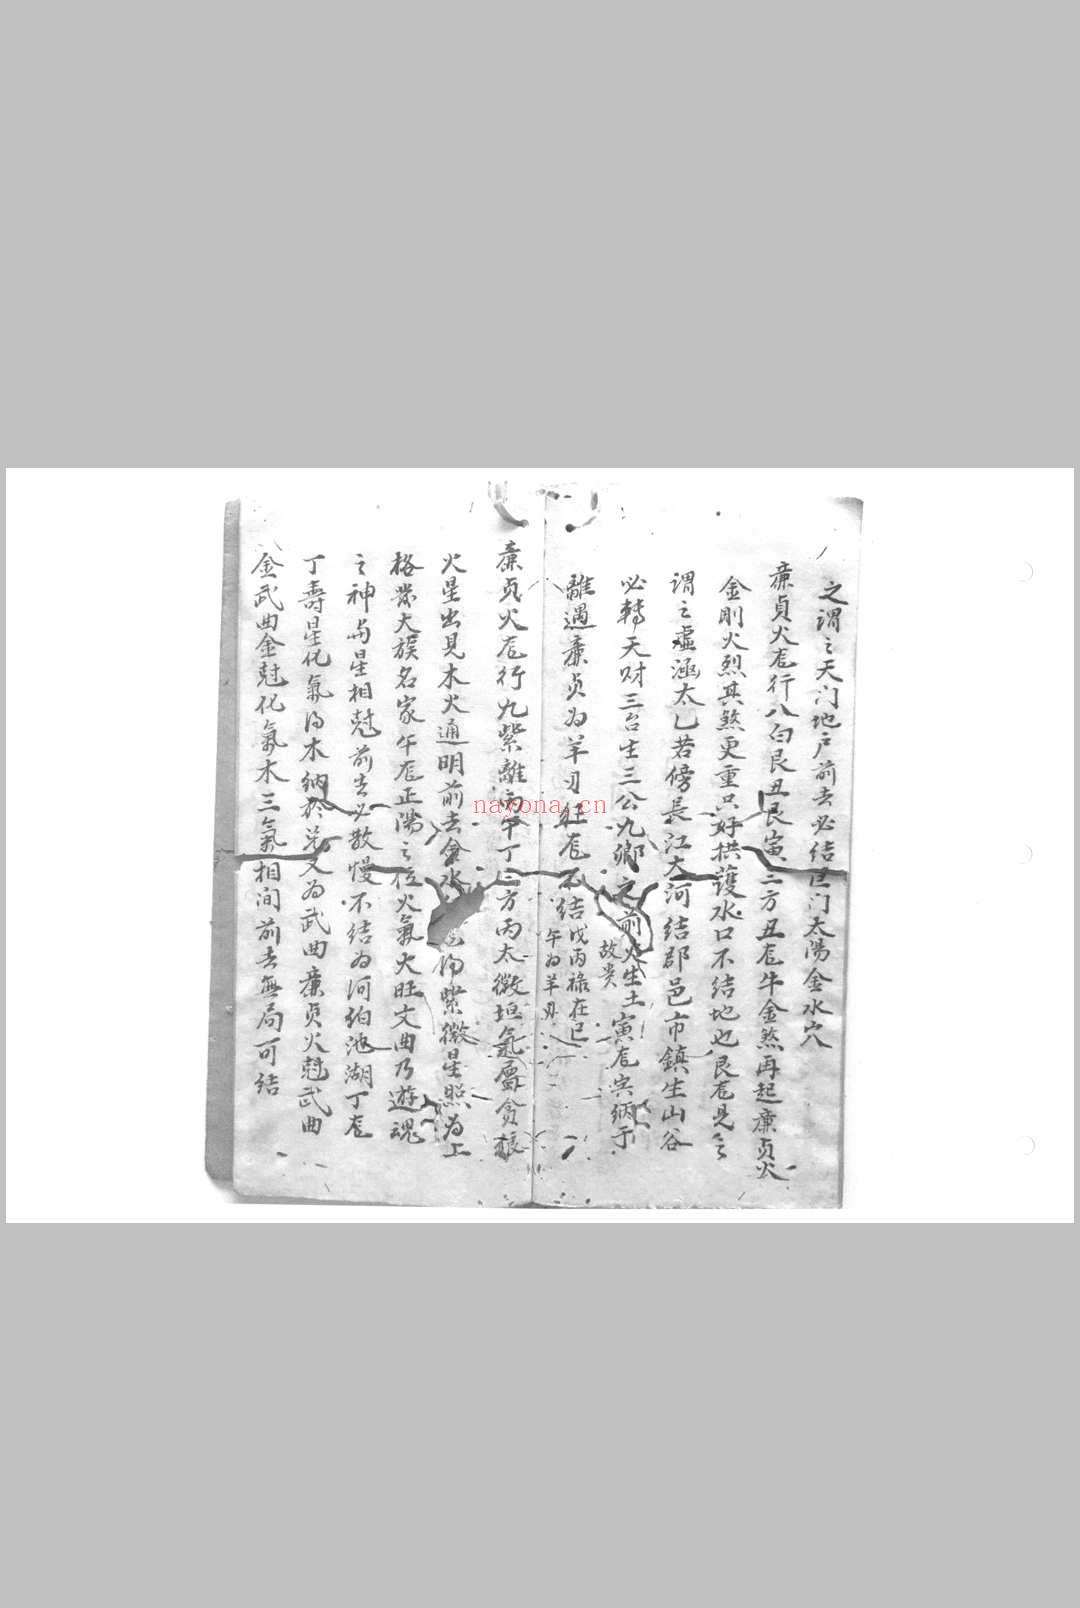 之谓之天门地户前去必结旺门太陽金水穴
廉貞火龙行八白艮丑艮寅三方丑龙牛金煞再起廉貞火
金刚火烈其煞更重只好拱護水口不结地也艮龙見之
謂之虛涵太乙若傍長江大河结郡邑市鎮生山谷
必轉天财三台生三公九卿之前火生土寅龙癸納于
故贵
離遇廉贞为羊刃旺龙不结
戊丙禄在巳
午为羊刃
廉貞火龙行九紫離丙午丁三方丙太微垣氣屬貪狼
火星出見木火通明前去金水 得紫微星照为上
格发大族名家午龙正陽之位火氣大旺文曲乃遊魂
之神与星相尅前去必散慢不结为河泊池湖丁龙
丁壽星化氣为木纳於兑又为武曲廉貞火尅武曲
金武曲金尅化氣木三氣相间前去無局可结
nayona.cn